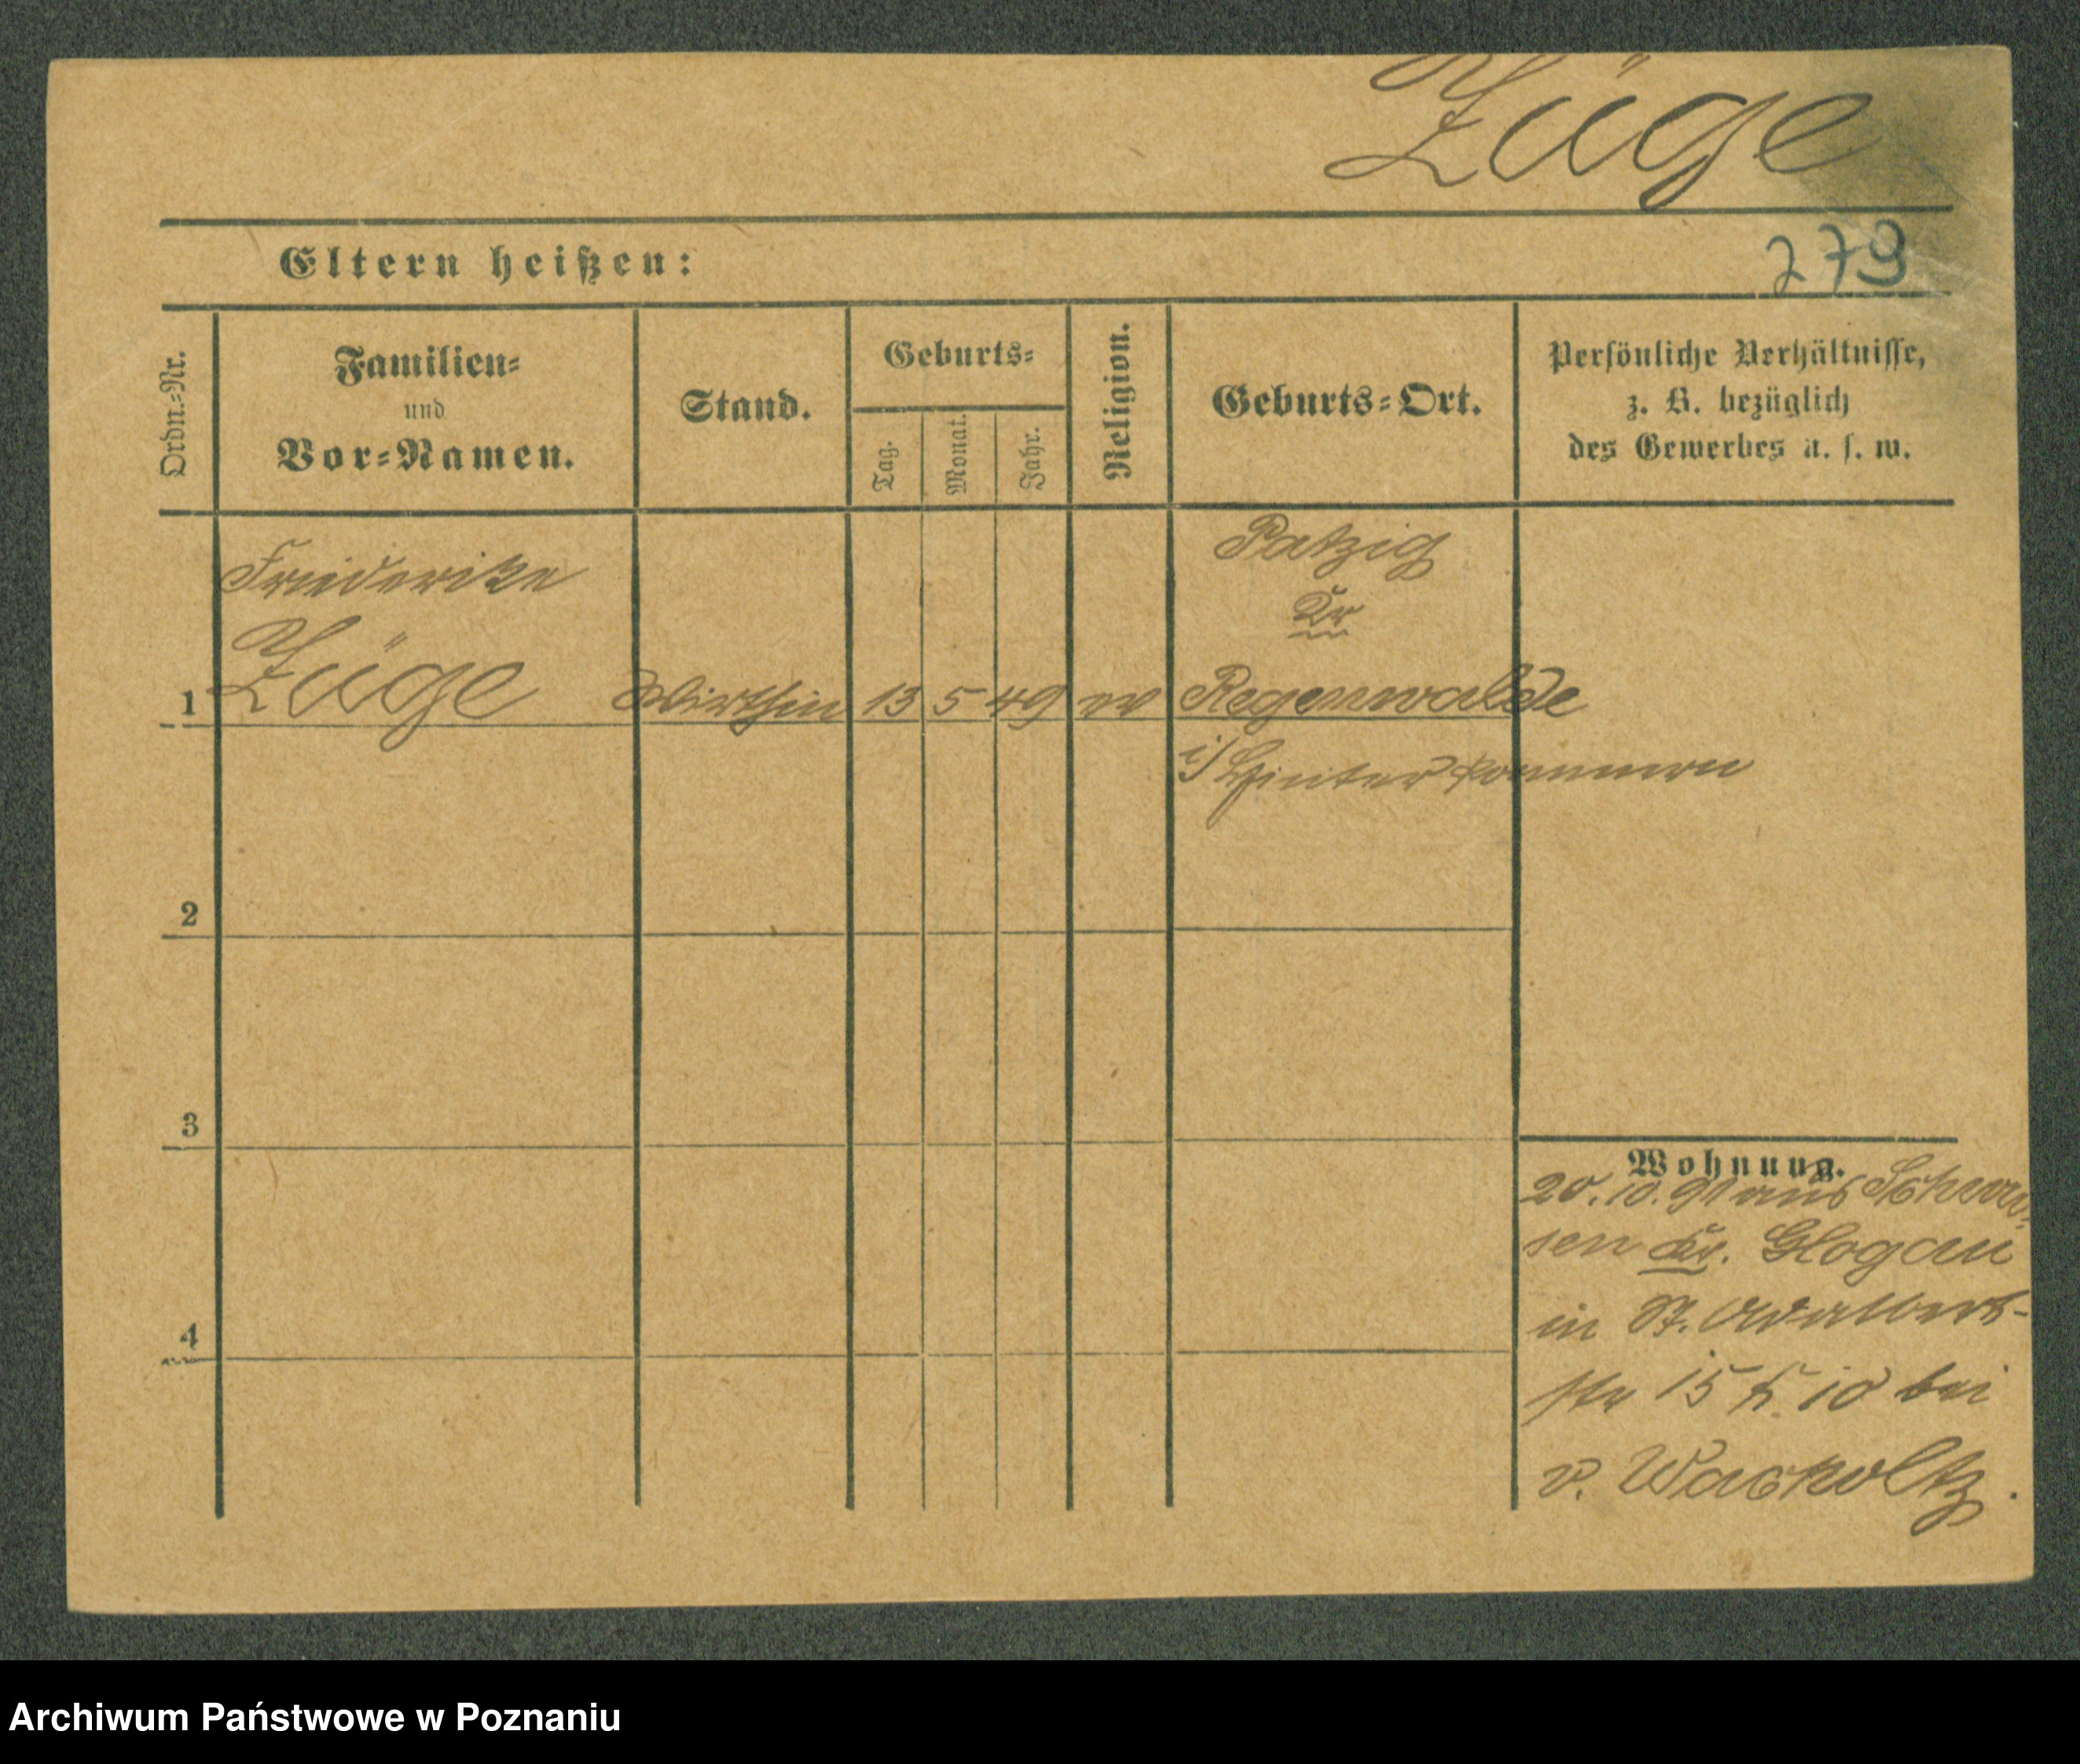 Züge
Eltern heißen:
279
Ordn.-Nr.
Familien-
und
Vor-Namen.
Stand.
Geburts-
Tag.
Monat.
Jahr.
Religion.
Geburts-Ort.
Persönliche Verhältnisse,
z. B. bezüglich
des Gewerbes u. s. w.
Friederike
Patzig
Kr
1 Züge Wirthin 13 5 49 ev Regenwalde
i/ Hinter Pommern
2
3
4
Wohnung.
20. 10. 91 aus
sen Kr. Glogau
in St. Adalbert-
str 15 10 bei
v.
Archiwum Państwowe w Poznaniu